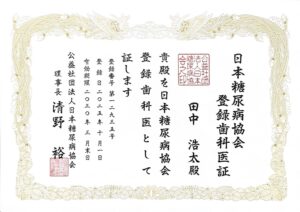 日本糖尿病協会
登録歯科医証
田中 浩太殿
貴殿を日本糖尿病協会
登録歯科医として
証します
登録番号 第一二九三五号
登録日 二〇二五年十月一日
有効期限 二〇三〇年三月末日
公益社団法人日本糖尿病協会
理事長 清野 裕